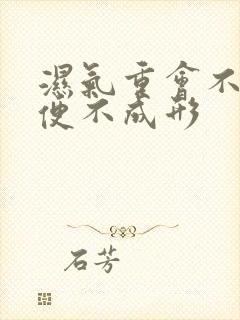 濕氣重會不
便不成形
石芳